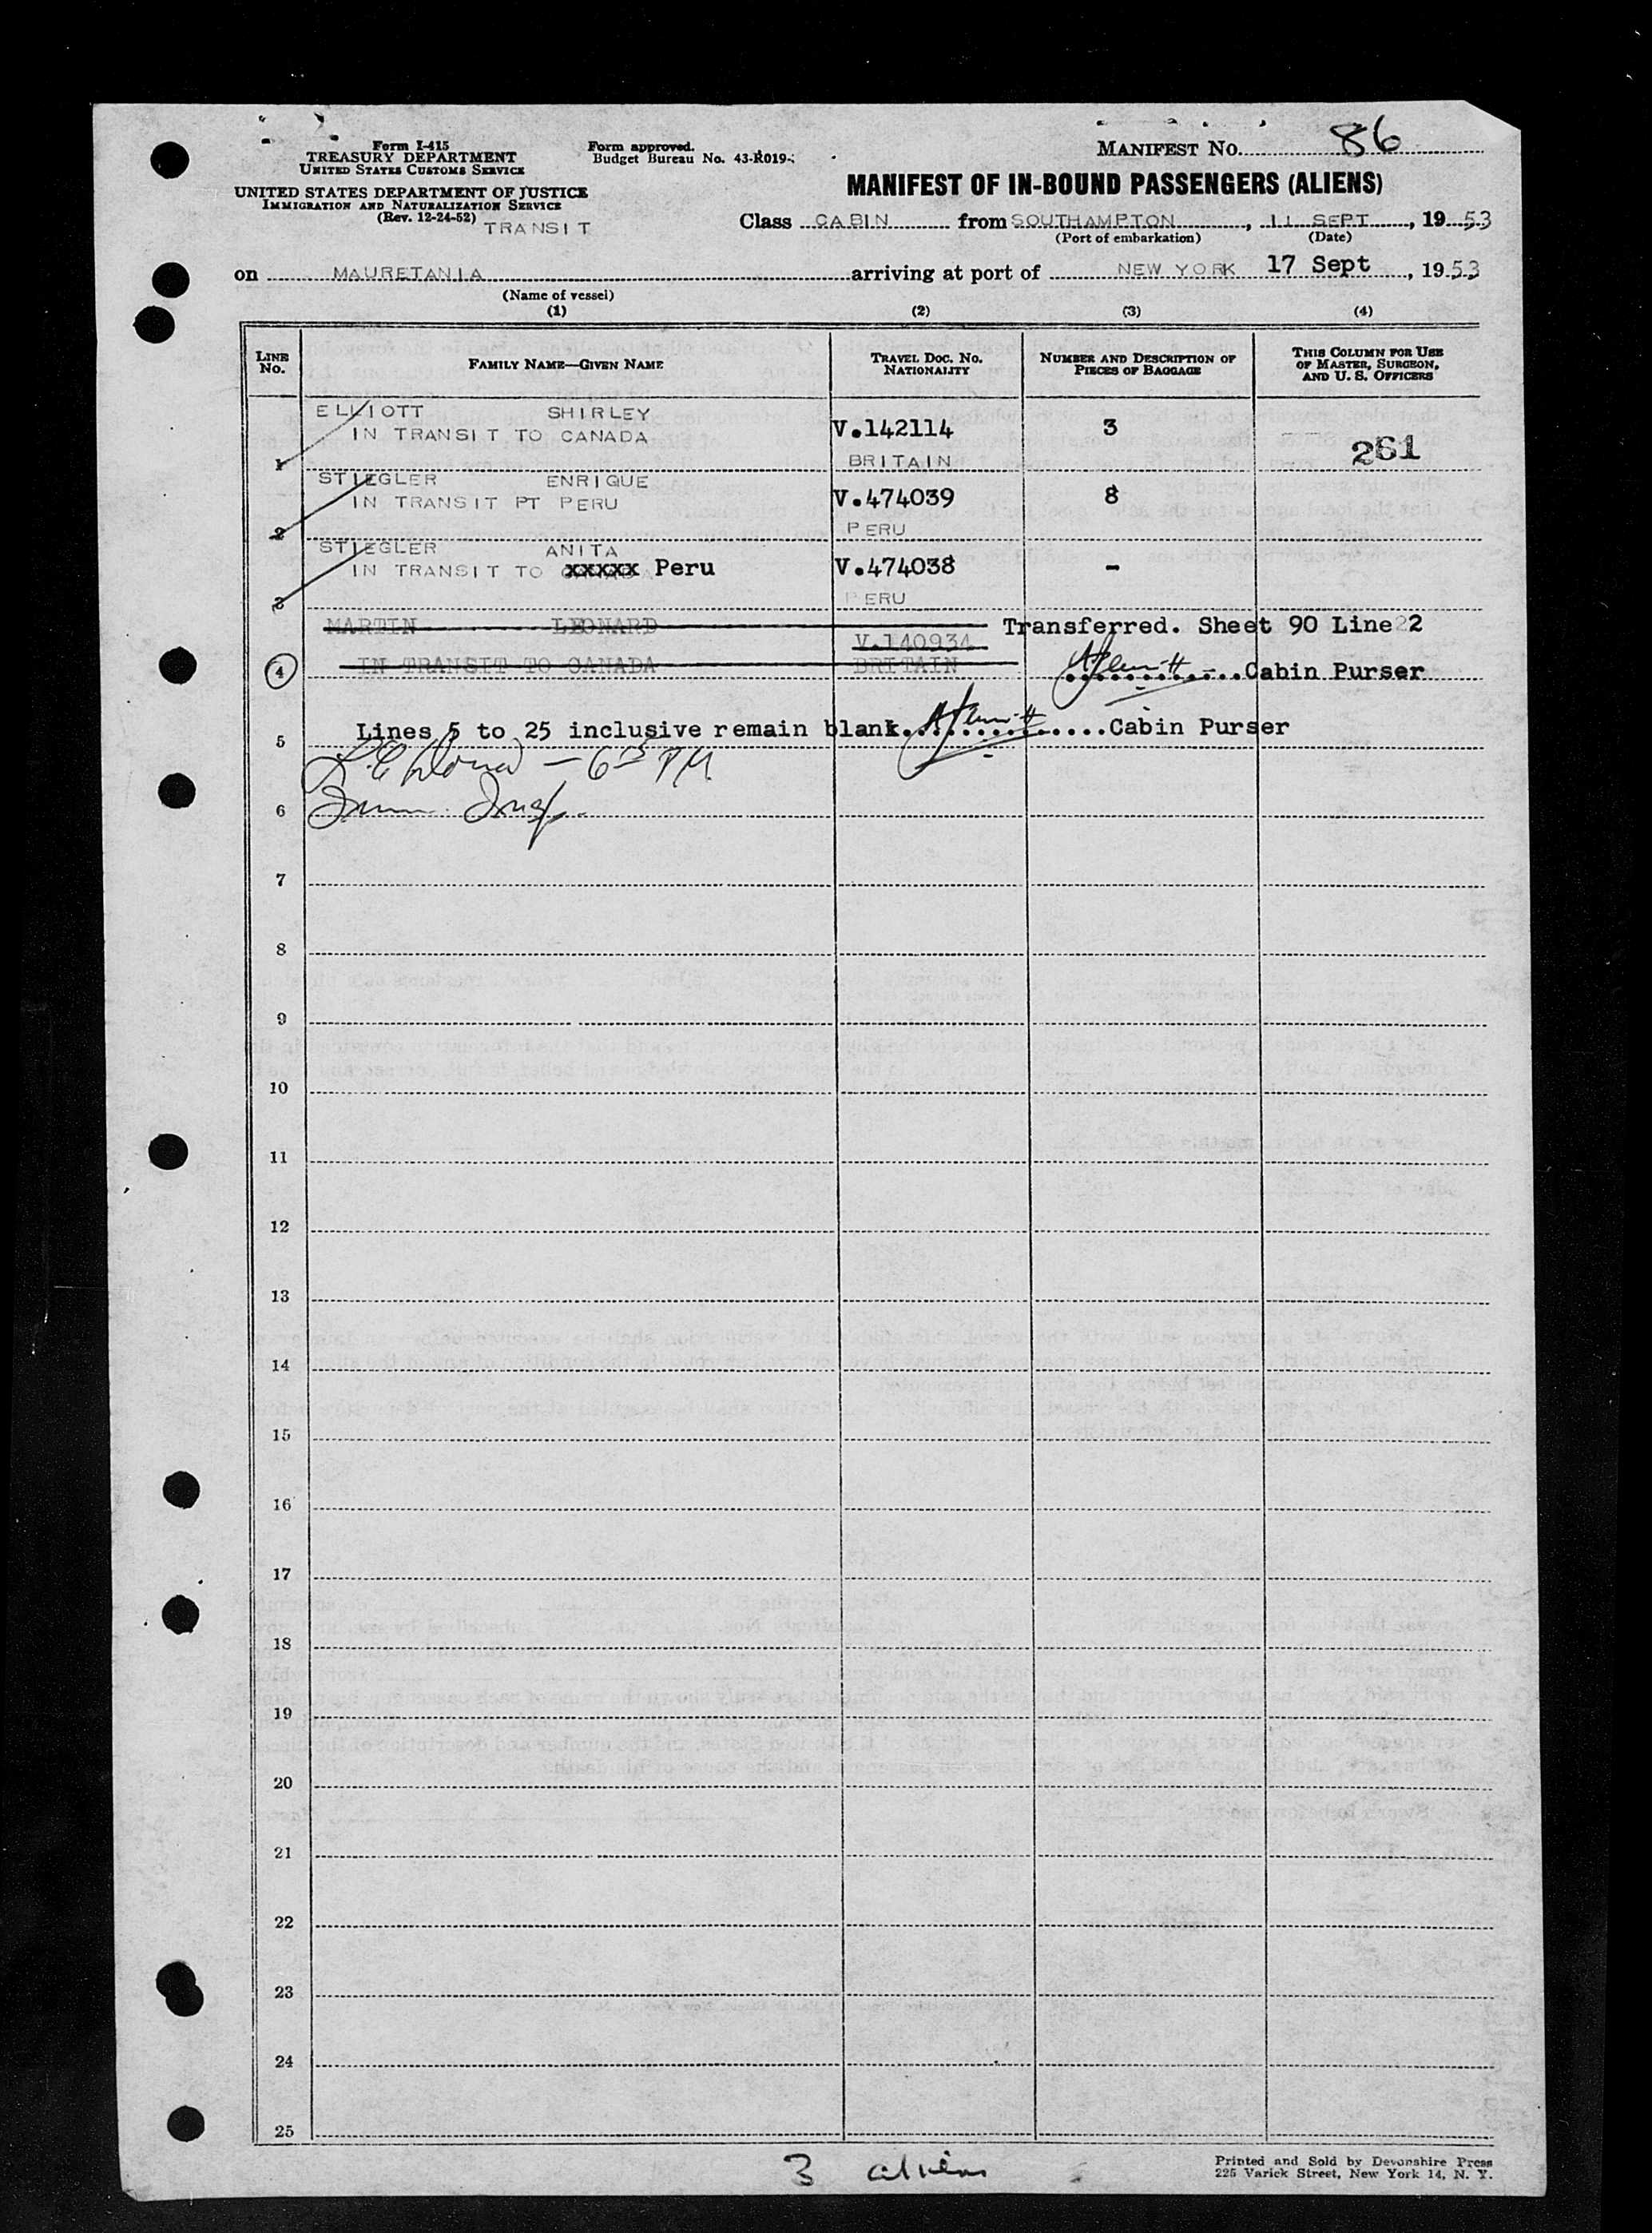 Form I-415
TREASURY DEPARTMENT
UNITED STATES CUSTOMS SERVICE
UNITED STATES DEPARTMENT OF JUSTICE
IMMIGRATION AND NATURALIZATION SERVICE
(Rev. 12-24-52)
TRANSIT
Form approved.
Budget Bureau No. 43-R019-
MANIFEST No. 86
MANIFEST OF IN-BOUND PASSENGERS (ALIENS)
Class CABIN from SOUTHAMPTON, 11 SEPT, 19 53
(Port of embarkation) (Date)
on MAURETANIA arriving at port of NEW YORK 17 Sept, 19 53
(Name of vessel)
(1) (2) (3) (4)
LINE No. FAMILY NAME—GIVEN NAME TRAVEL DOC. NO. NATIONALITY NUMBER AND DESCRIPTION OF PIECES OF BAGGAGE THIS COLUMN FOR USE OF MASTER, SURGEON, AND U. S. OFFICERS
ELLIOTT SHIRLEY
IN TRANSIT TO CANADA V.142114 3
1 BRITAIN 261
STIEGLER ENRIQUE
IN TRANSIT PT PERU V.474039 8
2 PERU
STIEGLER ANITA
IN TRANSIT TO xxxxx Peru V.474038 -
3 PERU
MARTIN LEONARD V.140934 Transferred. Sheet 90 Line 22
4 IN TRANSIT TO CANADA BRITAIN ............Cabin Purser
5 Lines 5 to 25 inclusive remain blank...............Cabin Purser
6
7
8
9
10
11
12
13
14
15
16
17
18
19
20
21
22
23
24
25
3 aliens
Printed and Sold by Devonshire Press
225 Varick Street, New York 14, N. Y.